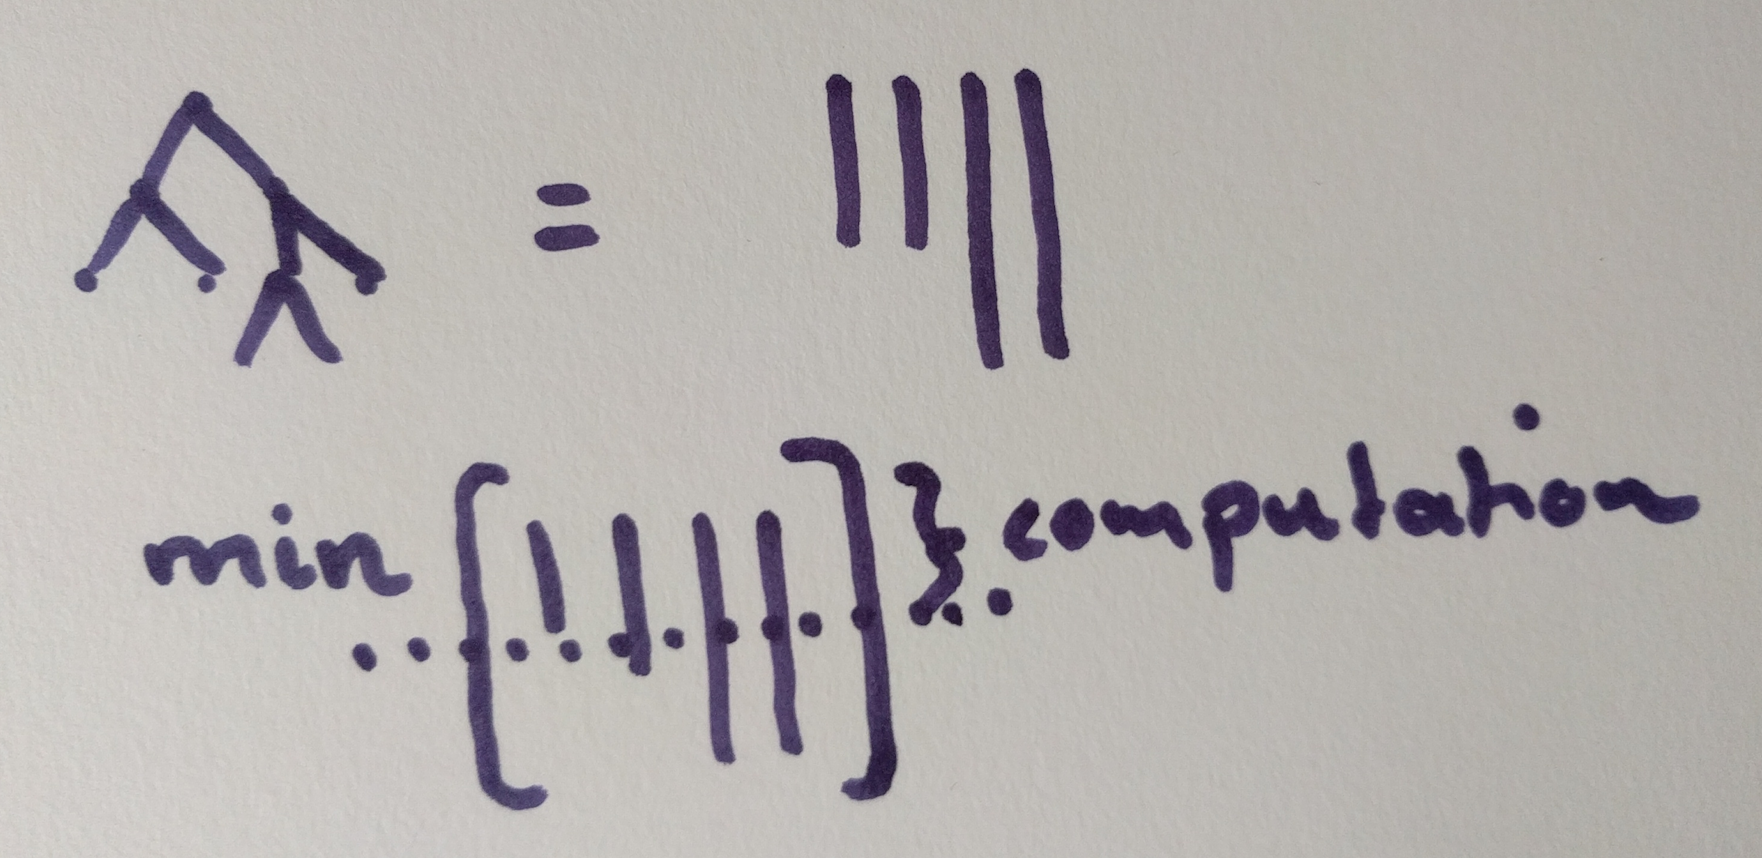 =
min [ | | | | ] } computation